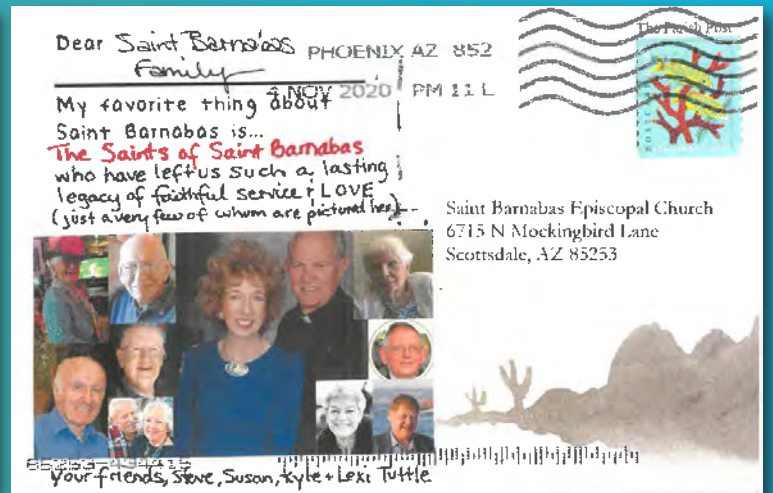 Dear Saint Barnabas
Family
PHOENIX AZ 852
4 NOV 2020 PM 11 L
The Parish Post
POSTCARD
My favorite thing about
Saint Barnabas is...
The Saints of Saint Barnabas
who have left us such a lasting
legacy of faithful service & LOVE
(just a very few of whom are pictured here)
Saint Barnabas Episcopal Church
6715 N Mockingbird Lane
Scottsdale, AZ 85253
Your friends, Steve, Susan, Kyle + Lexi Tuttle